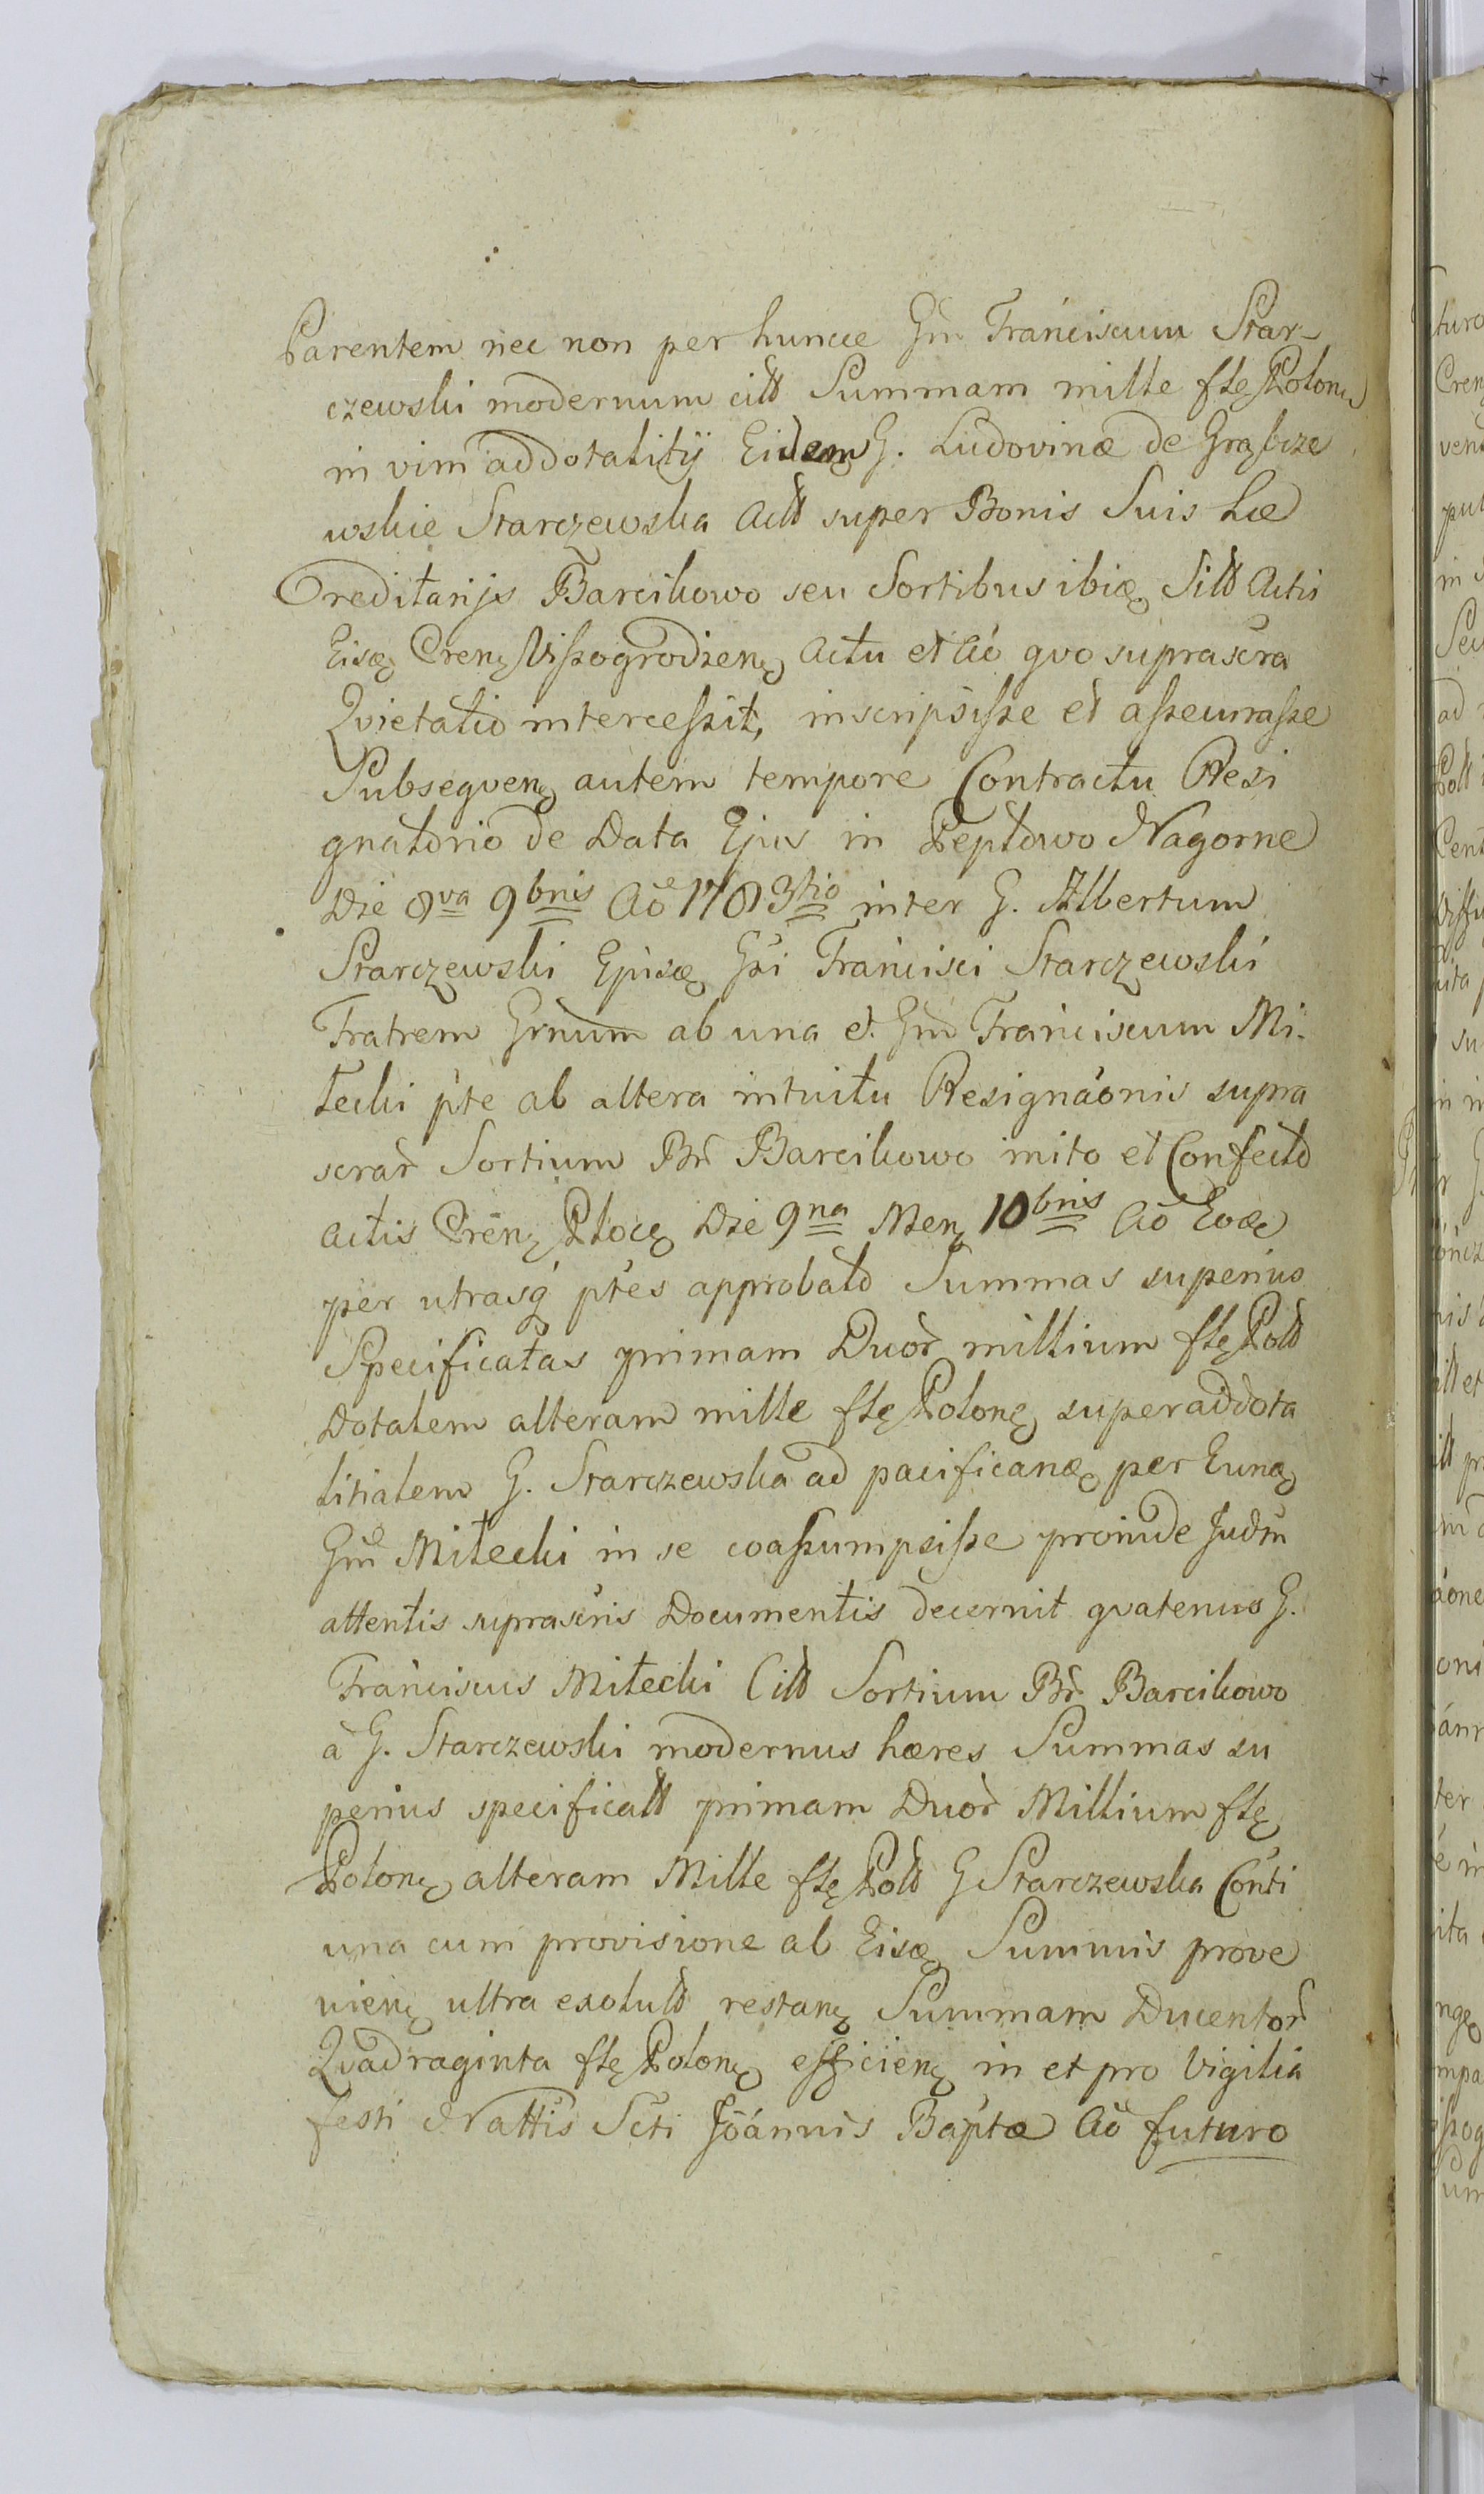 Parentem nec non per huncce Gm̃ Franciscum Star-
czewski modernum citt Summam mille flę Polonę
in vim addotalitÿ Eidem G. Ludovinæ de Grąbcze
wskie Starczewska Actt super Bonis Suis hæ
reditarijs Barcikowo seu Sortibus ibię Sitt Actis
Eisę Cren̄ę Wiszogrodzenę Actu et Ao quo suprascra
Qvietatio intercessit, inscripsisse et assecurasse
Subseqvenę autem tempore Contractu Resi
gnatorio de Data Ejus in Peptowo Nagorne
Die 8va 9bris Ao 1783tio inter G. Albertum
Starczewski Ejusę Gsi Francisci Starczewski
Fratrem Grnum ab una et Gm̃ Franciscum Mi-
tecki pte ab altera intuitu Resignaonis supra
scrar Sortium Br Barcikowo inito et Confecto
actis Crenę Plocę Die 9na Menę 10bris Ao Eoę
per utrasq ptes approbato Summas superius
Specificatas primam Duor millium flę Poltt
Dotalem alteram mille flę Polonę superaddota
litialem G. Starczewska ad pacificanę per Eunę
Gm̃ Mitecki in se coassumpsisse proinde Judm
attentis suprascris Documentis decernit qvatenus G.
Franciscus Mitecki Citt Sortium Br Barcikowo
à G. Starczewski modernus hæres Summas su
perius specificatt primam Duor Millium flę
Polonę alteram Mille flę Poltt G Starczewska Conti
una cum provisione ab Eisę Summis prove
nienę ultra exolutt restanę Summam Ducentor
Qvadraginta flę Polonę efficienę in et pro Vigilia
festi Nattis Scti Joannis Baptæ Ao futuro